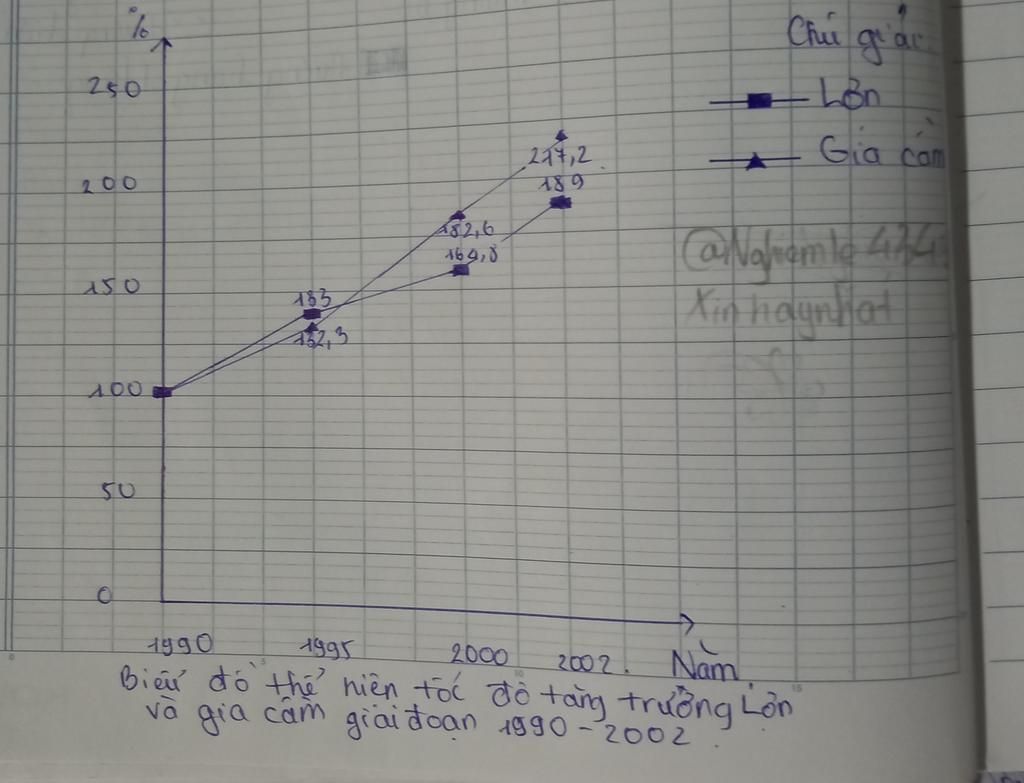 %
Chú giải
250
Lợn
Gia cầm
217,2
200
189
182,6
164,8
@Nghiemle434
Xin haynhat
150
133
132,3
100
50
0
1990 1995 2000 2002. Năm
Biểu đồ thể hiện tốc độ tăng trưởng Lợn
và gia cầm giai đoạn 1990-2002.